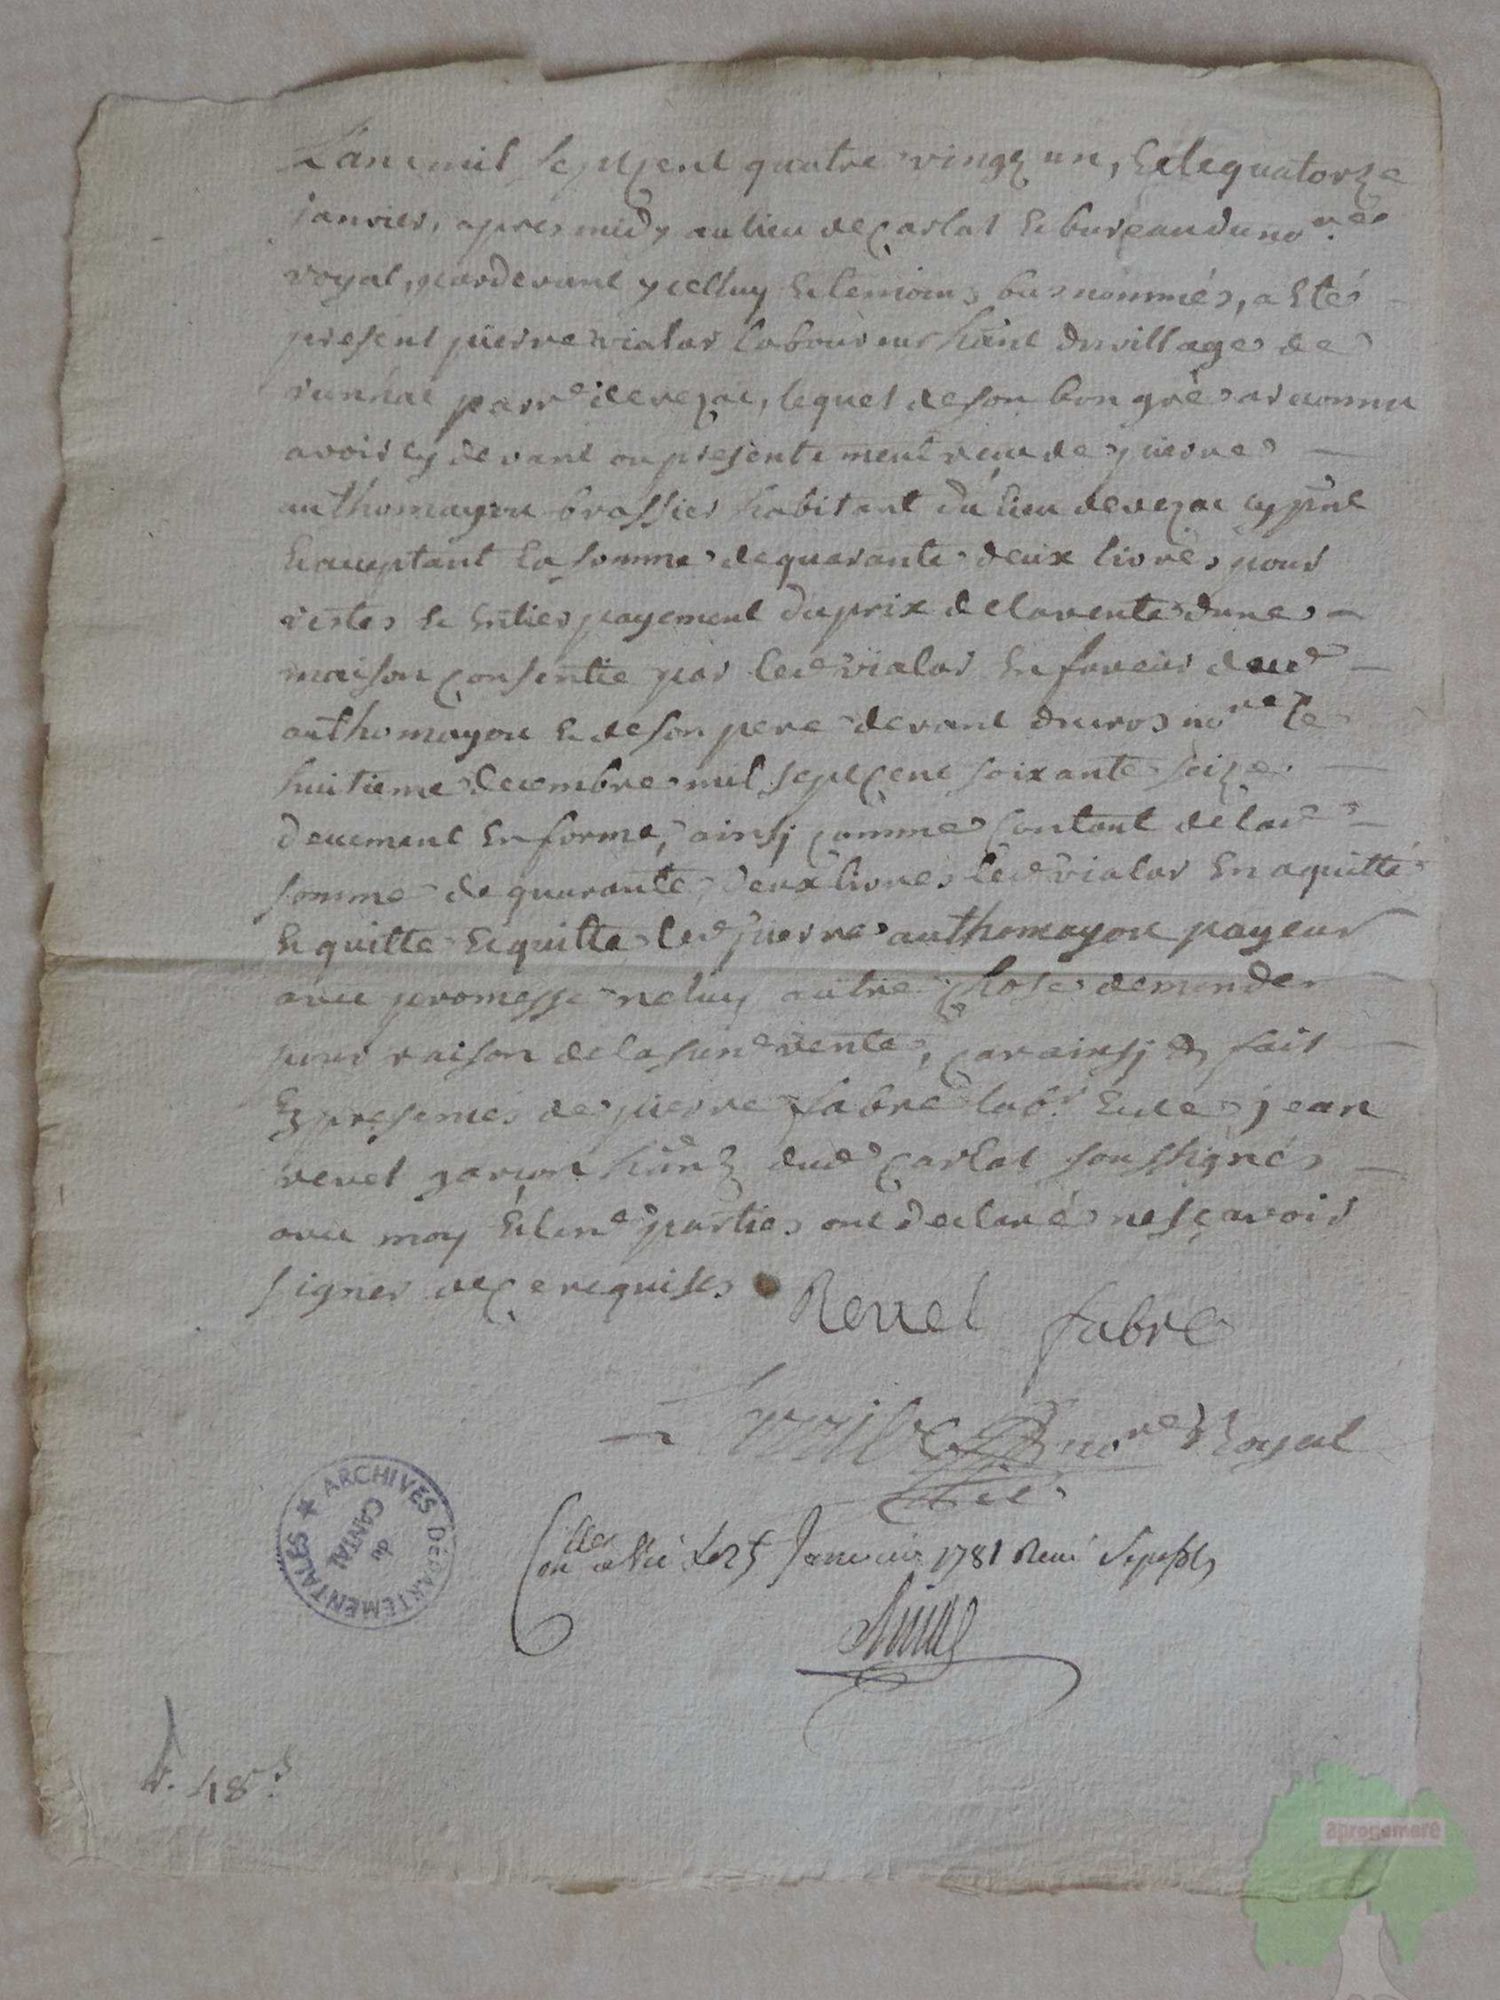 L'an mil sept cent quatre vingt un, et le quatorze
janvier, apres midy au lieu de Carlat et bureau du no.re
royal, pardevant ycelluy et temoins bas nommés, a etés
present pierre vialar laboureur hant du village de
runhac parr.e de vezac, lequel de son bon gré a reconnu
avoir cy devant ou presentement reçu de pierre
authomayou brassier habitant du lieu de vezac cy pnt
et acceptant la somme de quarante deux livres pour
restes et entier payement du prix de la vente d'une
maison consentie par led vialar en faveur dud
authomayou et de son pere devant no.re le
huitieme decembre mil sept cent soixante seize
deuement en forme, ainsy comme contant de lad
somme de quarante deux livres led vialar en a quitté
et quitte led pierre authomayou payeur
avec promesse ne luy autre chose demander
pour raison de la vente, car ainsy fait
en presences de pierre fabre lab.r et de jean
revel garçon dud Carlat soussignés
avec moy et parties ont declarés ne sçavoir
signer de ce requises
Revel fabre
no.re Royal
Con.lé a Vic le 25 Janvier 1781 Reçu
48.s
ARCHIVES DÉPARTEMENTALES
du
CANTAL
aprogemere